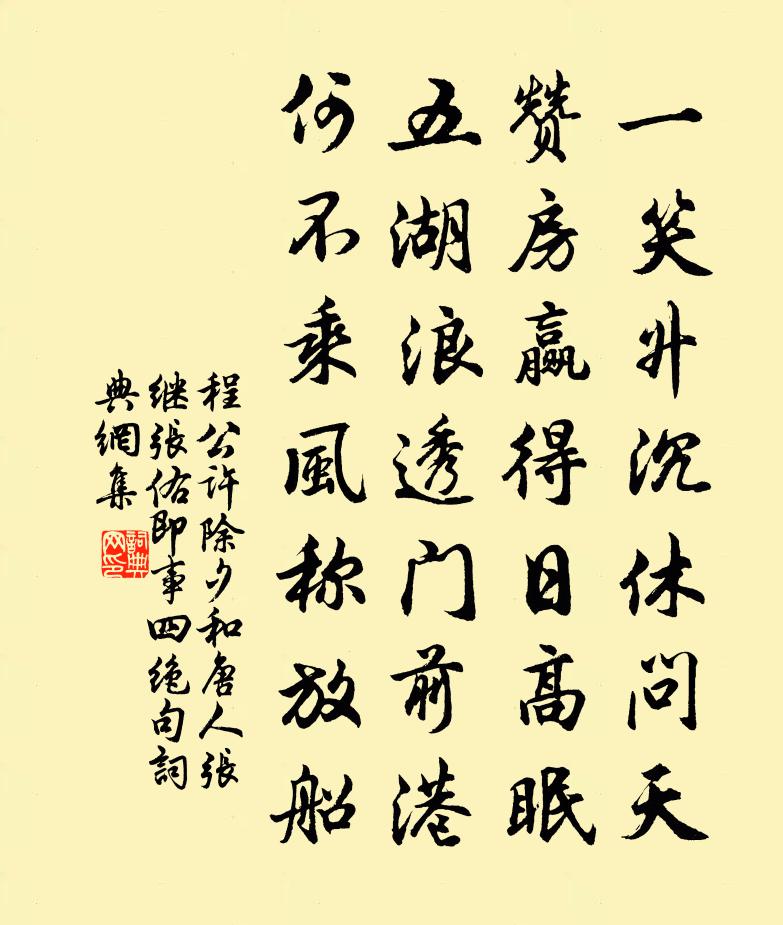 一笑升沉休问天
赞房赢得日高眠
五湖浪透门前港
何不乘風称放船
程公许除夕和唐人張
继張佑即事四绝句詞
典網集
詞典
网印